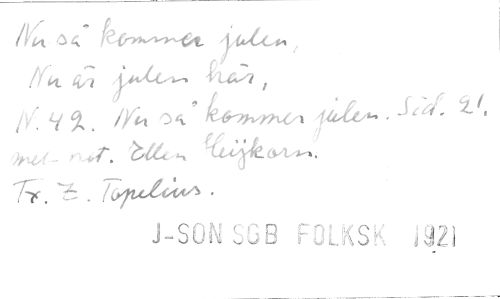 Nu så kommer julen,
Nu är julen här,
N. 42. Nu så kommer julen. Sid. 21.
mel. not. Ellen Heijkorn.
Tx. Z. Topelius.
J-SON SGB FOLKSK 1921